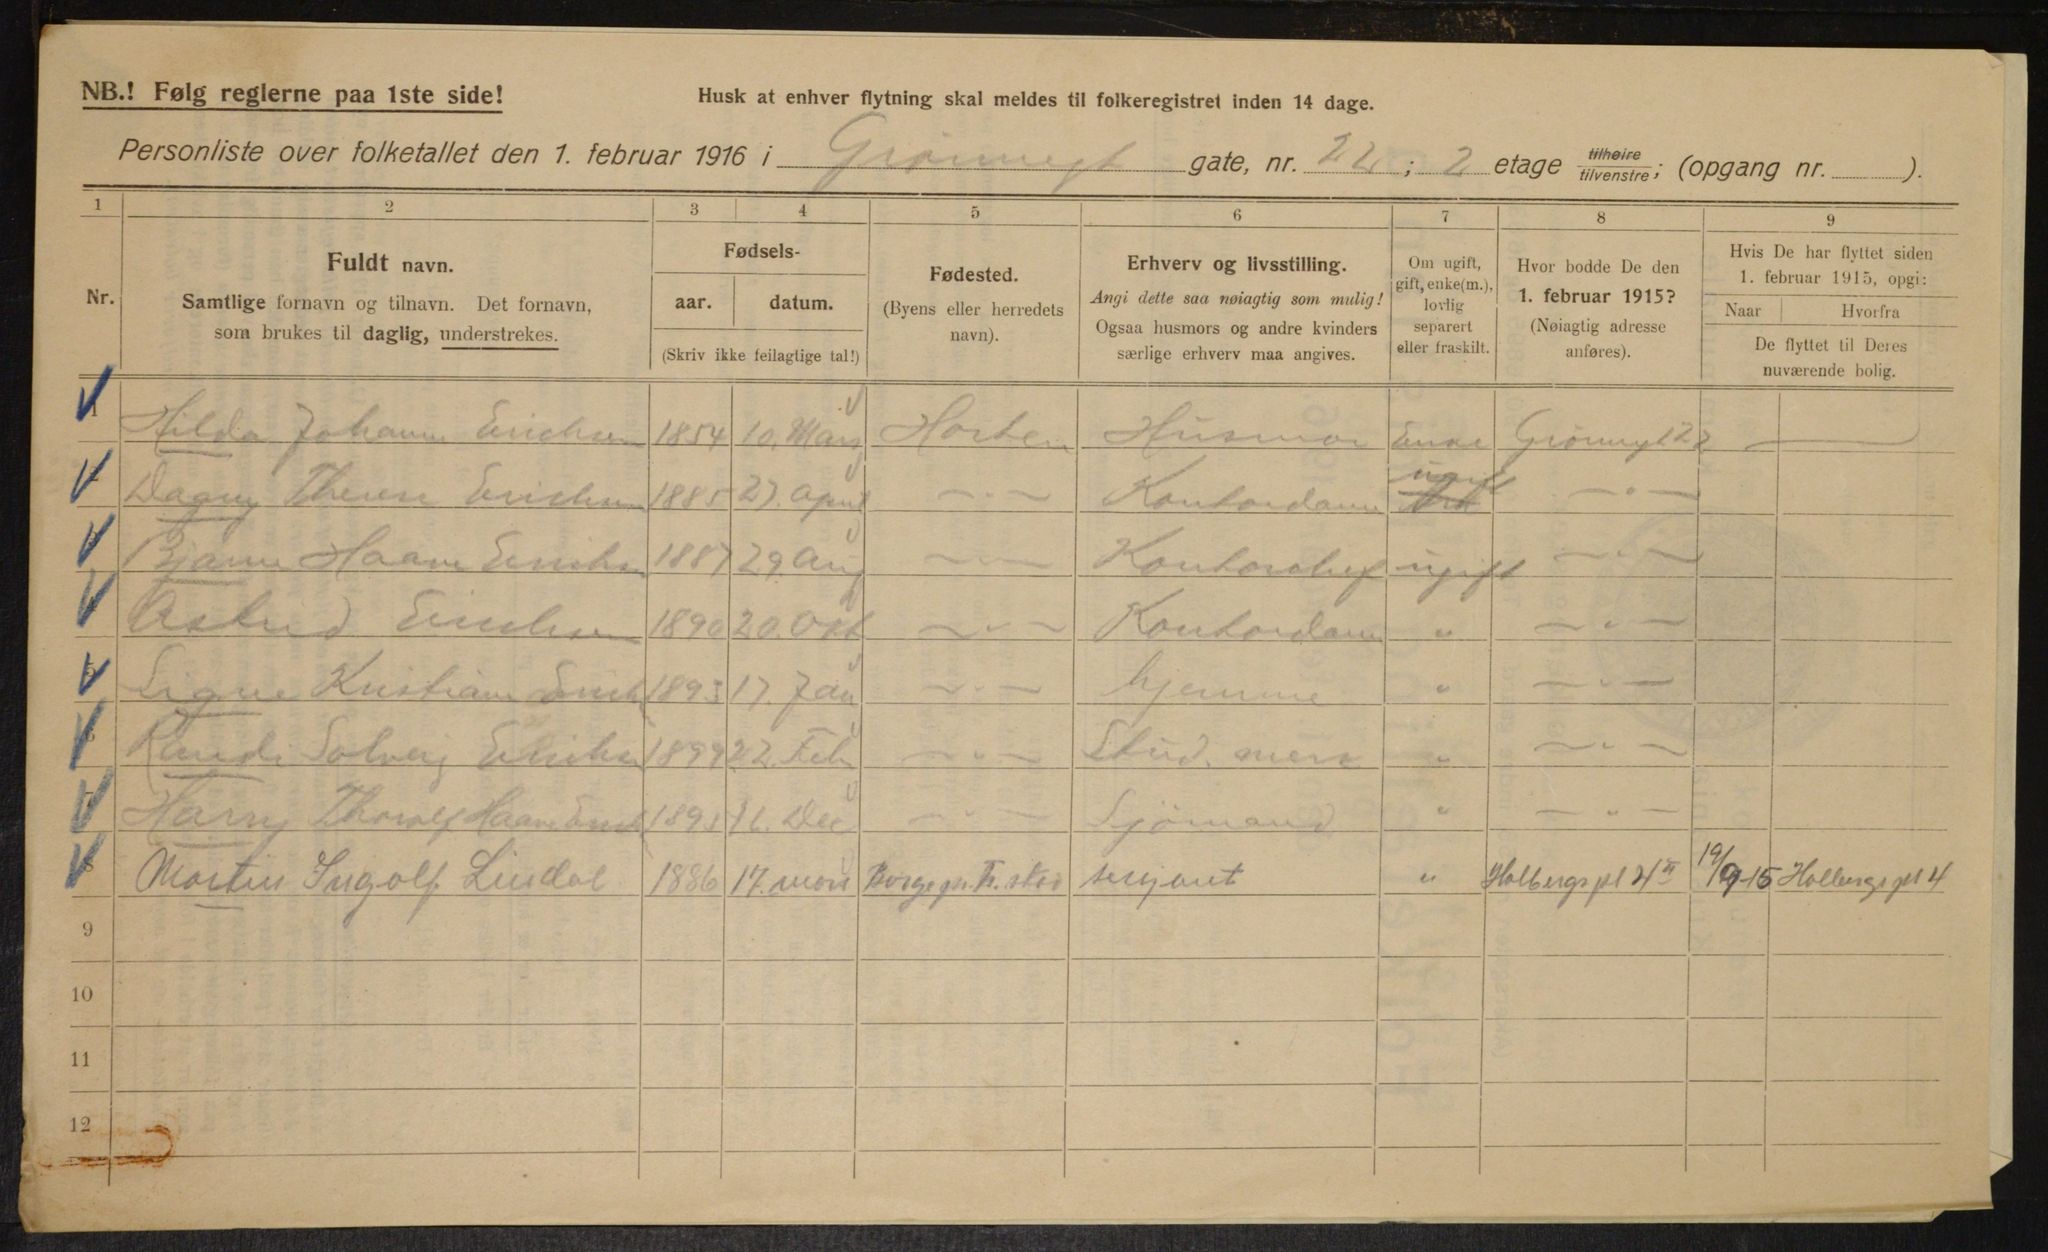 NB.! Følg reglerne paa 1ste side!
Husk at enhver flytning skal meldes til folkeregistret inden 14 dage.
Personliste over folketallet den 1. februar 1916 i Grønnegt gate, nr. 22 ; 2 etage tilhøire tilvenstre; (opgang nr. ).
1 2 3 4 5 6 7 8 9
Nr.
Fuldt navn.
Samtlige fornavn og tilnavn. Det fornavn,
som brukes til daglig, understrekes.
Fødsels-
aar. datum.
(Skriv ikke feilagtige tal!)
Fødested.
(Byens eller herredets
navn).
Erhverv og livsstilling.
Angi dette saa nøiagtig som mulig!
Ogsaa husmors og andre kvinders
særlige erhverv maa angives.
Om ugift,
gift, enke(m.),
lovlig
separert
eller fraskilt.
Hvor bodde De den
1. februar 1915?
(Nøiagtig adresse
anføres).
Hvis De har flyttet siden
1. februar 1915, opgi:
Naar Hvorfra
De flyttet til Deres
nuværende bolig.
1 Hilda Johanne Erichsen 1854 10. Mars Horten Husmor Enke Grønnegt 22 —
2 Dagny Therese Erichsen 1885 27. April — " — Kontordame ugift — " —
3 Bjarne Haave Erichsen 1887 29 Aug — " — Kontorchef ugift — " —
4 Astrid Erichsen 1890 20. Okt — " — Kontordame " — " —
5 Signe Kristiane Erichs 1893 17. Jan — " — hjemme " — " —
6 Randi Solveig Erichsen 1899 22. Feb — " — Stud. merc " — " —
7 Harry Thorolf Haave Erich 1895 16. Dec — " — Sjømand " — " —
8 Martin Ingolf Lindal 1886 17. mars Borge pr. Fr.stad serjant " Holbergs pl 4 II 19/9-15 Holbergs pl 4
9
10
11
12